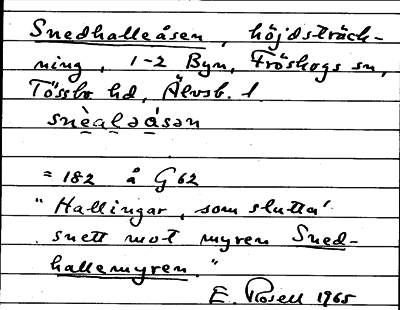 Snedhalleåsen, höjdsträck-
ning, 1-2 Byn, Fröskogs sn,
Tössbo hd, Älvsb. l.
snèaləásən
= 182 å G 62
"Hallingar, som slutta'
snett mot myren Sned-
hallemyren."
E. Rosell 1965